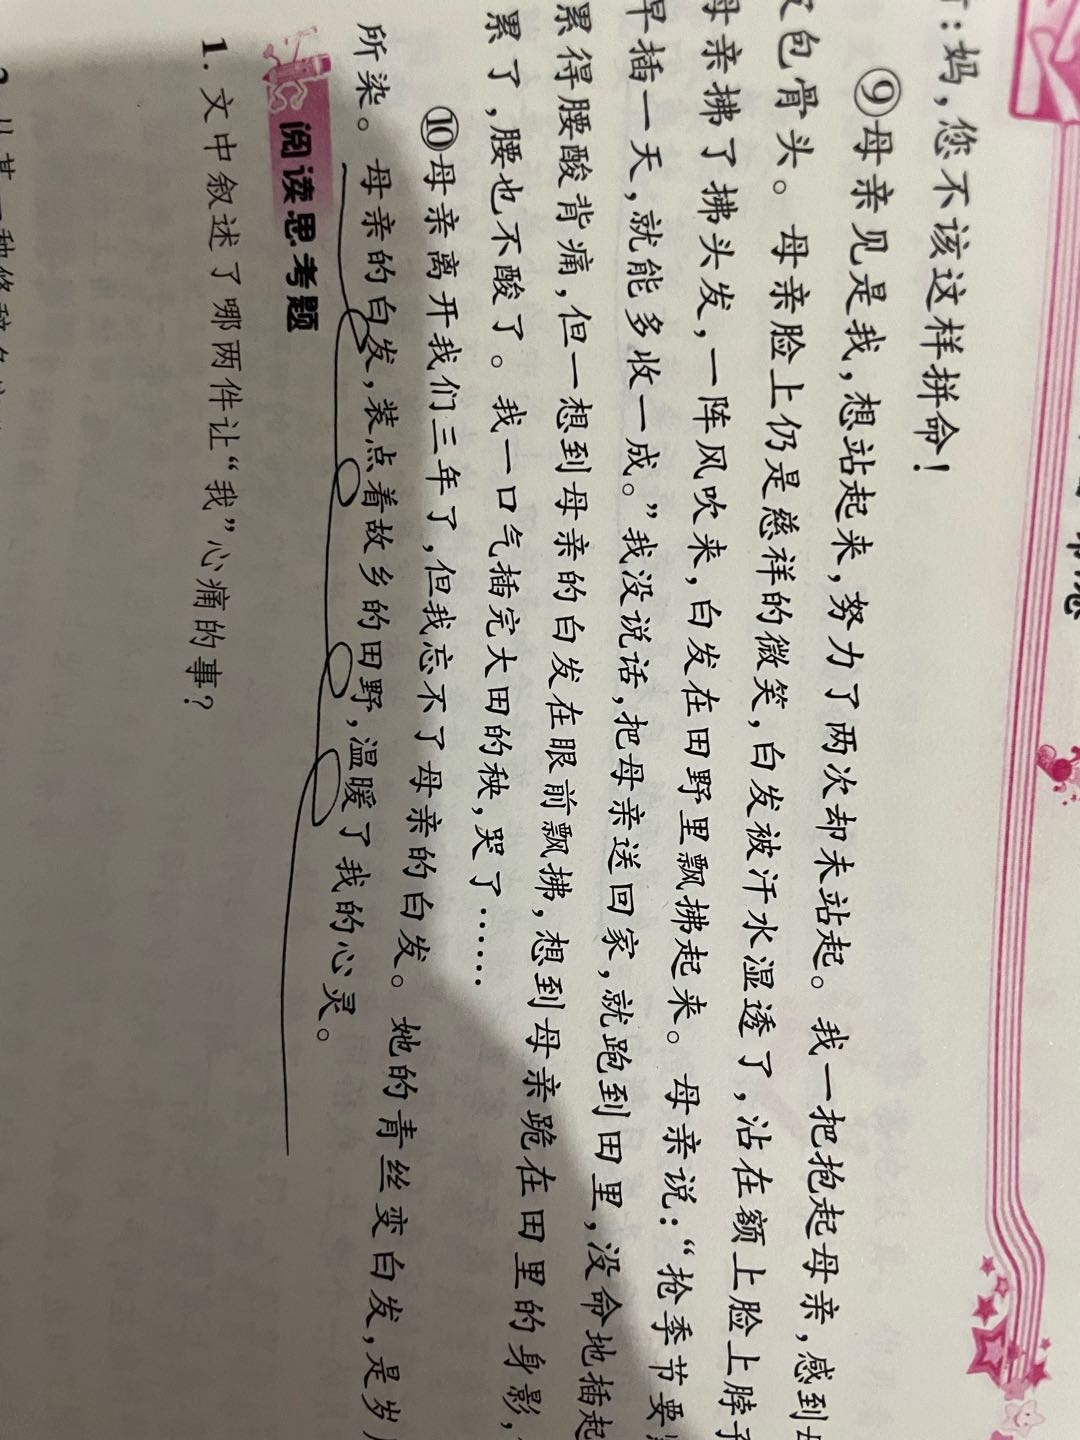 ：妈，您不该这样拼命！
⑨母亲见是我，想站起来，努力了两次却未站起。我一把抱起母亲，感到
包骨头。母亲脸上仍是慈祥的微笑，白发被汗水湿透了，沾在额上脸上脖子
母亲拂了拂头发，一阵风吹来，白发在田野里飘拂起来。母亲说：“抢季节要
早插一天，就能多收一成。”我没说话，把母亲送回家，就跑到田里，没命地插起
累得腰酸背痛，但一想到母亲的白发在眼前飘拂，想到母亲跪在田里的身影，
累了，腰也不酸了。我一口气插完大田的秧，哭了……
⑩母亲离开我们三年了，但我忘不了母亲的白发。她的青丝变白发，是岁
所染。母亲的白发，装点着故乡的田野，温暖了我的心灵。
阅读思考题
1. 文中叙述了哪两件让“我”心痛的事？